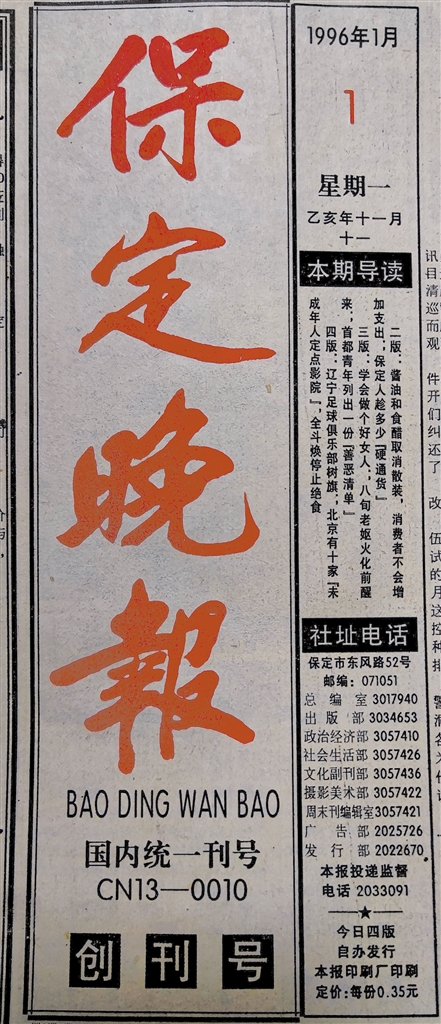 保定晚報
BAO DING WAN BAO
国内统一刊号
CN13—0010
创刊号
1996年1月
1
星期一
乙亥年十一月
十一
本期导读
二版：酱油和食醋取消散装，消费者不会增
加支出；保定人趁多少『硬通货』
三版：学会做个好女人；八旬老妪火化前醒
来；首都青年列出一份『善恶清单』
四版：辽宁足球俱乐部树旗；北京有十家『未
成年人定点影院』；全斗焕停止绝食
社址电话
保定市东风路52号
邮编：071051
总编室3017940
出版部3034653
政治经济部3057410
社会生活部3057426
文化副刊部3057436
摄影美术部3057422
周末刊编辑室3057421
广告部2025726
发行部2022670
本报投递监督
电话 2033091
★
今日四版
自办发行
本报印刷厂印刷
定价:每份0.35元